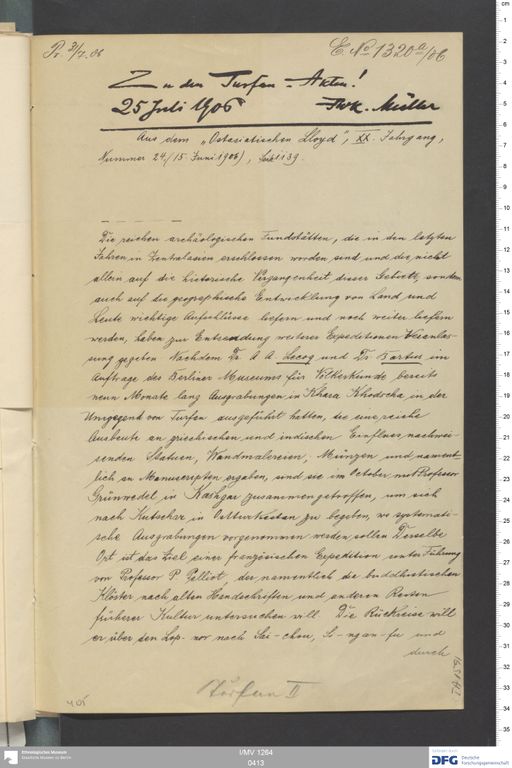 Pr. 31/7. 06
E. No 1320a/06
Zu den Turfan-Akten!
25 Juli 1906 FWK. Müller
Aus dem „Ostasiatischen Lloyd", XX. Jahrgang,
Nummer 24. (15. Juni 1906), Seite 1139.
Die reichen archäologischen Fundstätten, die in den letzten
Jahren in Zentralasien erschlossen worden sind und die nicht
allein auf die historische Vergangenheit dieses Gebiets, sondern
auch auf die geographische Entwicklung von Land und
Leute wichtige Aufschlüsse liefern und noch weiter liefern
werden, haben zur Entsendung weiterer Expeditionen Veranlas-
sung gegeben Nachdem Dr A. A. Lecoq und Dr Bartus im
Auftrage des Berliner Museums für Völkerkunde bereits
neun Monate lang Ausgrabungen in Khara Khodscha in der
Umgegend von Turfan ausgeführt hatten, die eine reiche
Ausbeute an griechischen und indischen Einfluss nachwei-
senden Statuen, Wandmalereien, Münzen und nament-
lich an Manuscripten ergaben, sind sie im October mit Professor
Grünwedel in Kashgar zusammengetroffen, um sich
nach Kutschar in Ostturkestan zu begeben, wo systemati-
sche Ausgrabungen vorgenommen werden sollen Derselbe
Ort ist das Ziel einer französischen Expedition unter Führung
von Professor P. Pelliot, der namentlich die buddhistischen
Klöster nach alten Handschriften und anderen Resten
früherer Kultur untersuchen will Die Rückreise will
er über den Lop-nor nach Sai-chou, Si-ngan-fu und
durch
Turfan II
405
Ethnologisches Museum
Staatliche Museen zu Berlin
I/MV 1264
0413
DFG Deutsche
Forschungsgemeinschaft